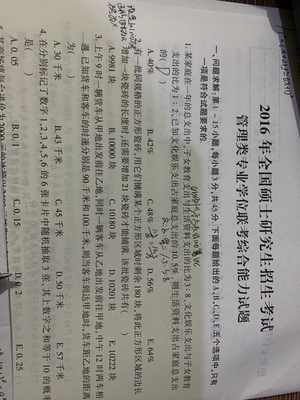 2016 年全国硕士研究生招生考试
管理类专业学位联考综合能力试题
一、问题求解：第 1～15 小题，每小题 3 分，共 45 分。下面每题给出的 A、B、C、D、E 五个选项中，只有
一项是符合试题要求的。
1. 某家庭在一年的总支出中，子女教育支出与生活资料支出的比为 3：8，文化娱乐支出与子女教育
支出的比为 1：2。已知文化娱乐支出占家庭总支出的 10.5%，则生活资料支出占家庭总支出
的(　　)
A. 40%　B. 42%　C. 48%　D. 56%　E. 64%
2. 有一批同规格的正方形瓷砖，用它们铺满某个正方形区域时剩余 180 块，将此正方形区域的边长
增加一块瓷砖的长度时，还需要增加 21 块瓷砖才能铺满，该批瓷砖共有(　　)
A. 9981 块　B. 10000 块　C. 10180 块　D. 10201 块　E. 10222 块
3. 上午 9 时一辆货车从甲地出发前往乙地，同时一辆客车从乙地出发前往甲地，中午 12 时两车相
遇，已知货车和客车的时速分别是 90 千米和 100 千米，则当客车到达甲地时，货车距乙地的距离
为(　　)
A. 30 千米　B. 43 千米　C. 45 千米　D. 50 千米　E. 57 千米
4. 在分别标记了数字 1、2、3、4、5、6 的 6 张卡片中随机抽取 3 张，其上数字之和等于 10 的概率
是(　　)
A. 0. 05　B. 0. 1　C. 0. 15　D. 0. 2　E. 0. 25